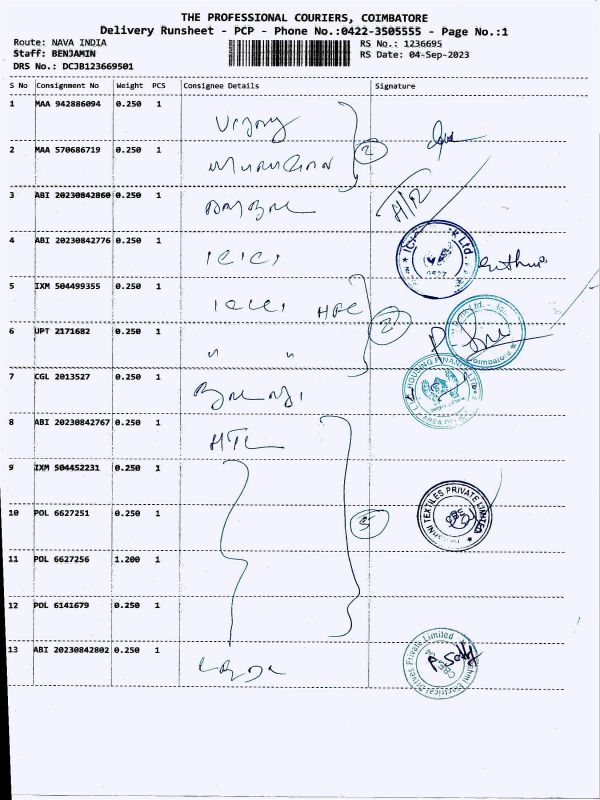 THE PROFESSIONAL COURIERS, COIMBATORE
Delivery Runsheet - PCP - Phone No.:0422-3505555 - Page No.:1
Route: NAVA INDIA
Staff: BENJAMIN
DRS No.: DCJB123669501
RS No.: 1236695
RS Date: 04-Sep-2023
S No Consignment No Weight PCS Consignee Details Signature
1 MAA 942886094 0.250 1
2 MAA 570686719 0.250 1
2
3 ABI 20230842860 0.250 1
4 ABI 20230842776 0.250 1 ICICI
5 IXM 504499355 0.250 1 ICICI
2
6 UPT 2171682 0.250 1 " "
7 CGL 2013527 0.250 1
HOUSING FINANCE LTD
8 ABI 20230842767 0.250 1
9 IXM 504452231 0.250 1
10 POL 6627251 0.250 1
5
TEXTILES PRIVATE LIMITED
11 POL 6627256 1.200 1
12 POL 6141679 0.250 1
13 ABI 20230842802 0.250 1
Electrical Drives Private Limited